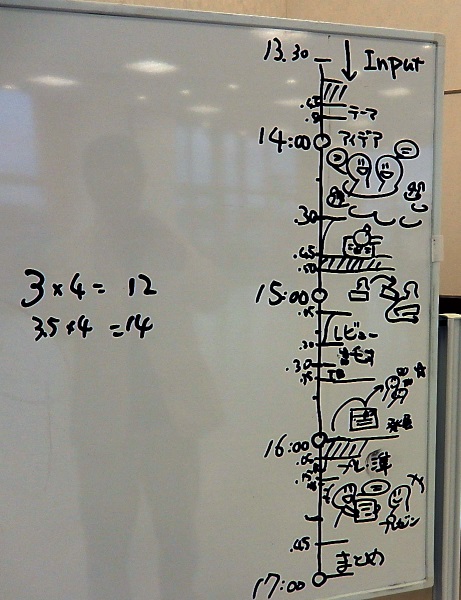 13.30
Input
.45
テーマ
14:00
アイデア
.30
.45
.50
3×4= 12
15:00
3.5×4 =14
レビュー
.30
16:00
発表
プレ準
プレゼン
.45
まとめ
17:00